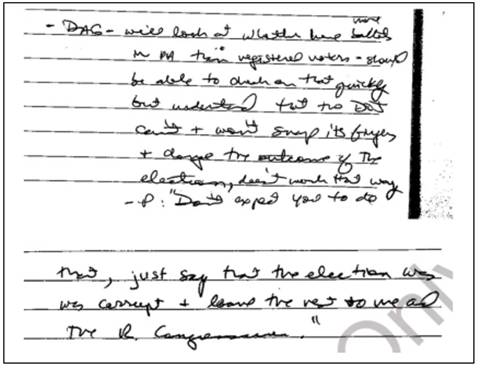 - DAG - will look at whether have more ballots
in PA than registered voters - should
be able to check on that quickly
but understand that the DOJ
can't + won't snap its fingers
+ change the outcome of the
election, doesn't work that way
- P: "Don't expect you to do
that, just say that the election was
was corrupt + leave the rest to me and
the R. Congressmen."
Only